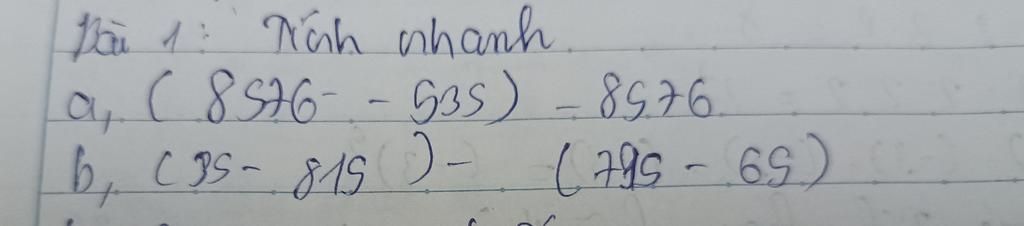 Bài 1: Tính nhanh
a, ( 8576 - 535) - 8576
b, (35 - 815 ) - (795 - 65)